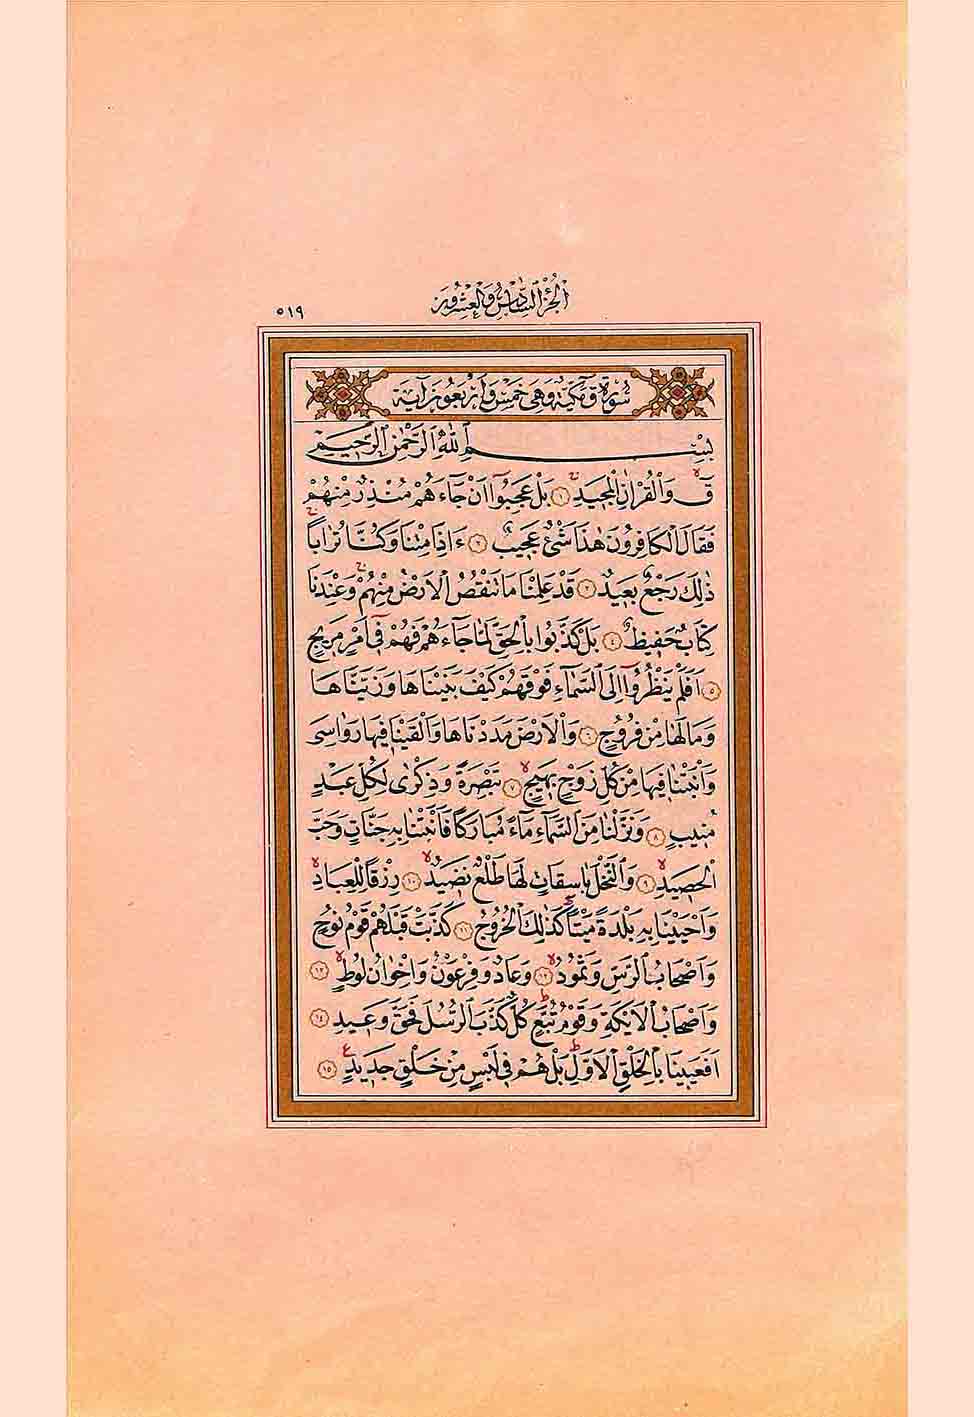 الجزء السادس والعشرون
٥١٩
سورة ق مكية وهى خمس واربعون آية
بِسْمِ اللّٰهِ الرَّحْمٰنِ الرَّحِيمِ
قٓ وَالْقُرْاٰنِ الْمَجِيدِ ۝١ بَلْ عَجِبُٓوا اَنْ جَٓاءَهُمْ مُنْذِرٌ مِنْهُمْ
فَقَالَ الْكَافِرُونَ هٰذَا شَيْءٌ عَجِيبٌ ۝٢ ءَاِذَا مِتْنَا وَكُنَّا تُرَاباً
ذٰلِكَ رَجْعٌ بَعِيدٌ ۝٣ قَدْ عَلِمْنَا مَا تَنْقُصُ الْاَرْضُ مِنْهُمْ وَعِنْدَنَا
كِتَابٌ حَفِيظٌ ۝٤ بَلْ كَذَّبُوا بِالْحَقِّ لَمَّا جَٓاءَهُمْ فَهُمْ فِٓي اَمْرٍ مَرِيجٍ
۝٥ اَفَلَمْ يَنْظُرُٓوا اِلَى السَّمَٓاءِ فَوْقَهُمْ كَيْفَ بَنَيْنَاهَا وَزَيَّنَّاهَا
وَمَا لَهَا مِنْ فُرُوجٍ ۝٦ وَالْاَرْضَ مَدَدْنَاهَا وَاَلْقَيْنَا فِيهَا رَوَاسِيَ
وَاَنْبَتْنَا فِيهَا مِنْ كُلِّ زَوْجٍ بَهِيجٍ ۝٧ تَبْصِرَةً وَذِكْرٰى لِكُلِّ عَبْدٍ
مُنِيبٍ ۝٨ وَنَزَّلْنَا مِنَ السَّمَٓاءِ مَٓاءً مُبَارَكاً فَاَنْبَتْنَا بِهِ جَنَّاتٍ وَحَبَّ
الْحَصِيدِ ۝٩ وَالنَّخْلَ بَاسِقَاتٍ لَهَا طَلْعٌ نَضِيدٌ ۝١٠ رِزْقاً لِلْعِبَادِ
وَاَحْيَيْنَا بِهِ بَلْدَةً مَيْتاً كَذٰلِكَ الْخُرُوجُ ۝١١ كَذَّبَتْ قَبْلَهُمْ قَوْمُ نُوحٍ
وَاَصْحَابُ الرَّسِّ وَثَمُودُ ۝١٢ وَعَادٌ وَفِرْعَوْنُ وَاِخْوَانُ لُوطٍ ۝١٣
وَاَصْحَابُ الْاَيْكَةِ وَقَوْمُ تُبَّعٍ كُلٌّ كَذَّبَ الرُّسُلَ فَحَقَّ وَعِيدِ ۝١٤
اَفَعَيِينَا بِالْخَلْقِ الْاَوَّلِ بَلْ هُمْ فِي لَبْسٍ مِنْ خَلْقٍ جَدِيدٍ ۝١٥